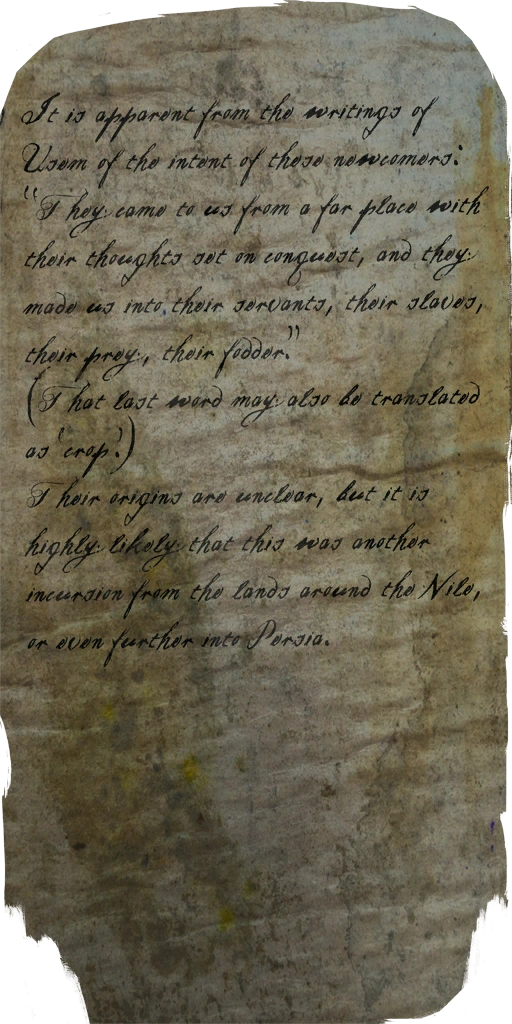 It is apparent from the writings of
Usem of the intent of these newcomers:
"They came to us from a far place with
their thoughts set on conquest, and they
made us into their servants, their slaves,
their prey, their fodder."
(That last word may also be translated
as 'crop'.)
Their origins are unclear, but it is
highly likely that this was another
incursion from the lands around the Nile,
or even further into Persia.